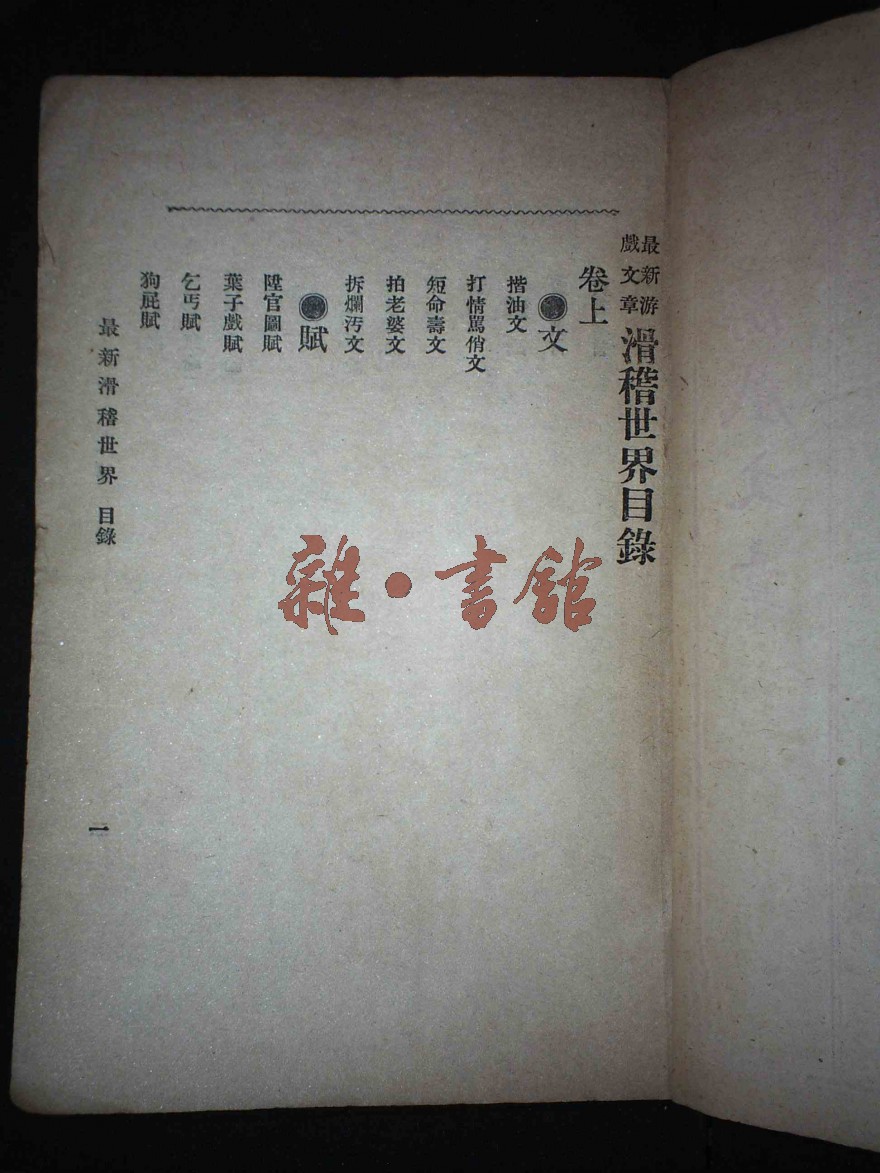 最新游
戲文章
滑稽世界目錄
卷上
文
揩油文
打情罵俏文
短命壽文
拍老婆文
拆爛汚文
賦
陞官圖賦
葉子戲賦
乞丐賦
狗屁賦
最新滑稽世界 目錄
一
雜·書館